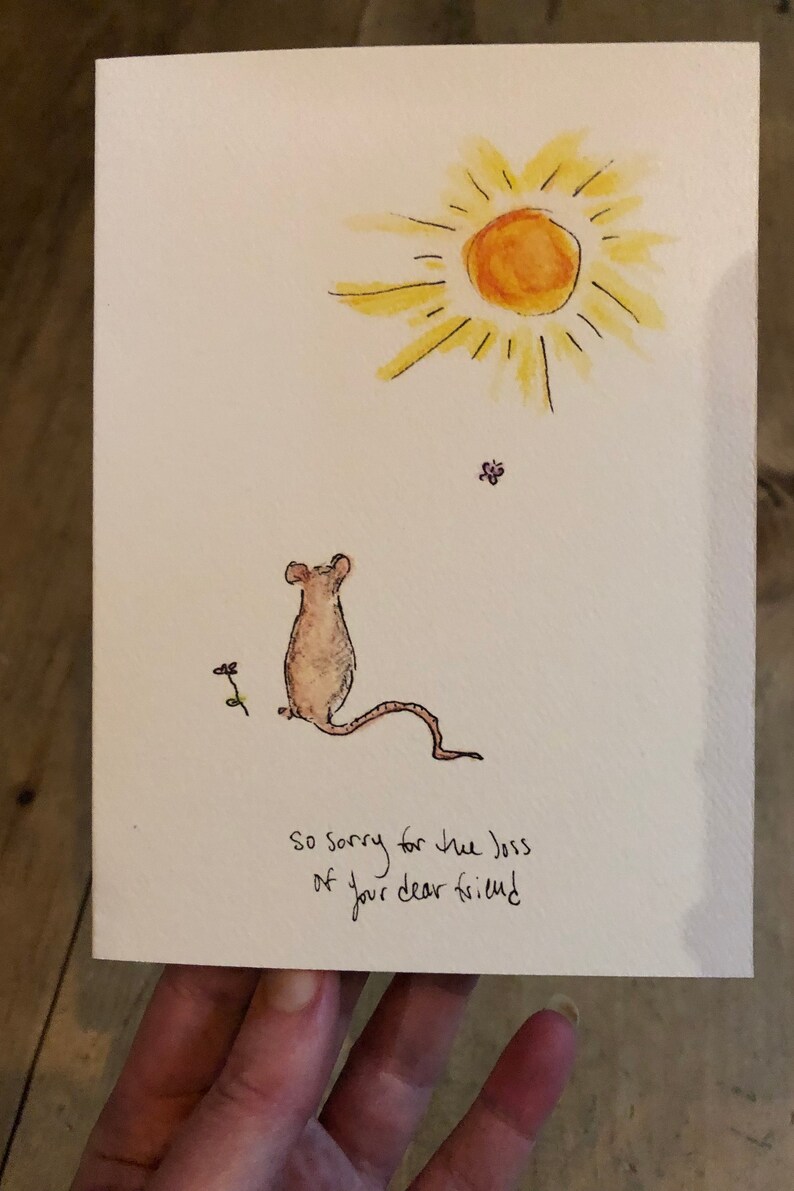 so sorry for the loss
of your dear friend